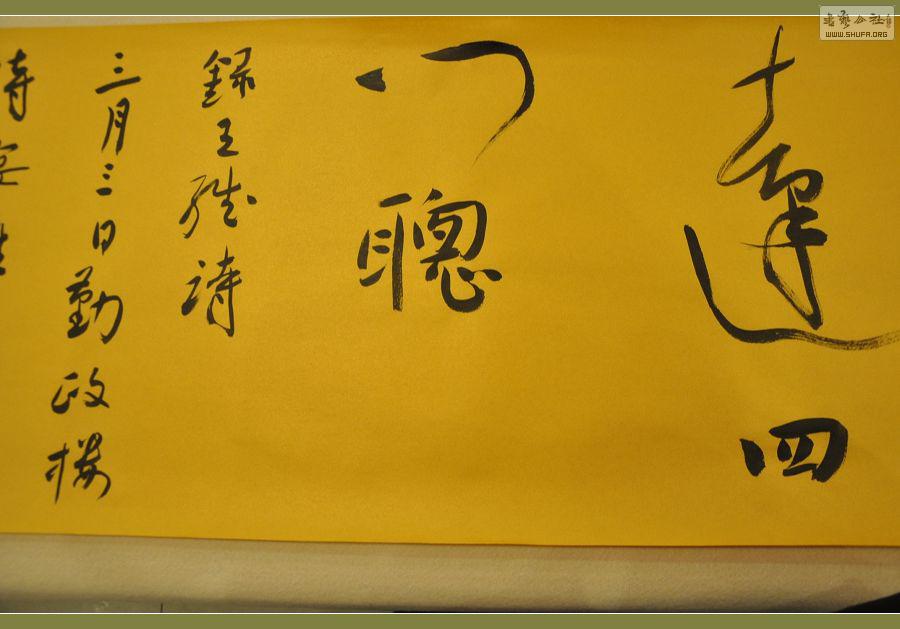 達四
門聰
錄王維詩
三月三日勤政樓
侍宴
書藝公社
WWW.SHUFA.ORG